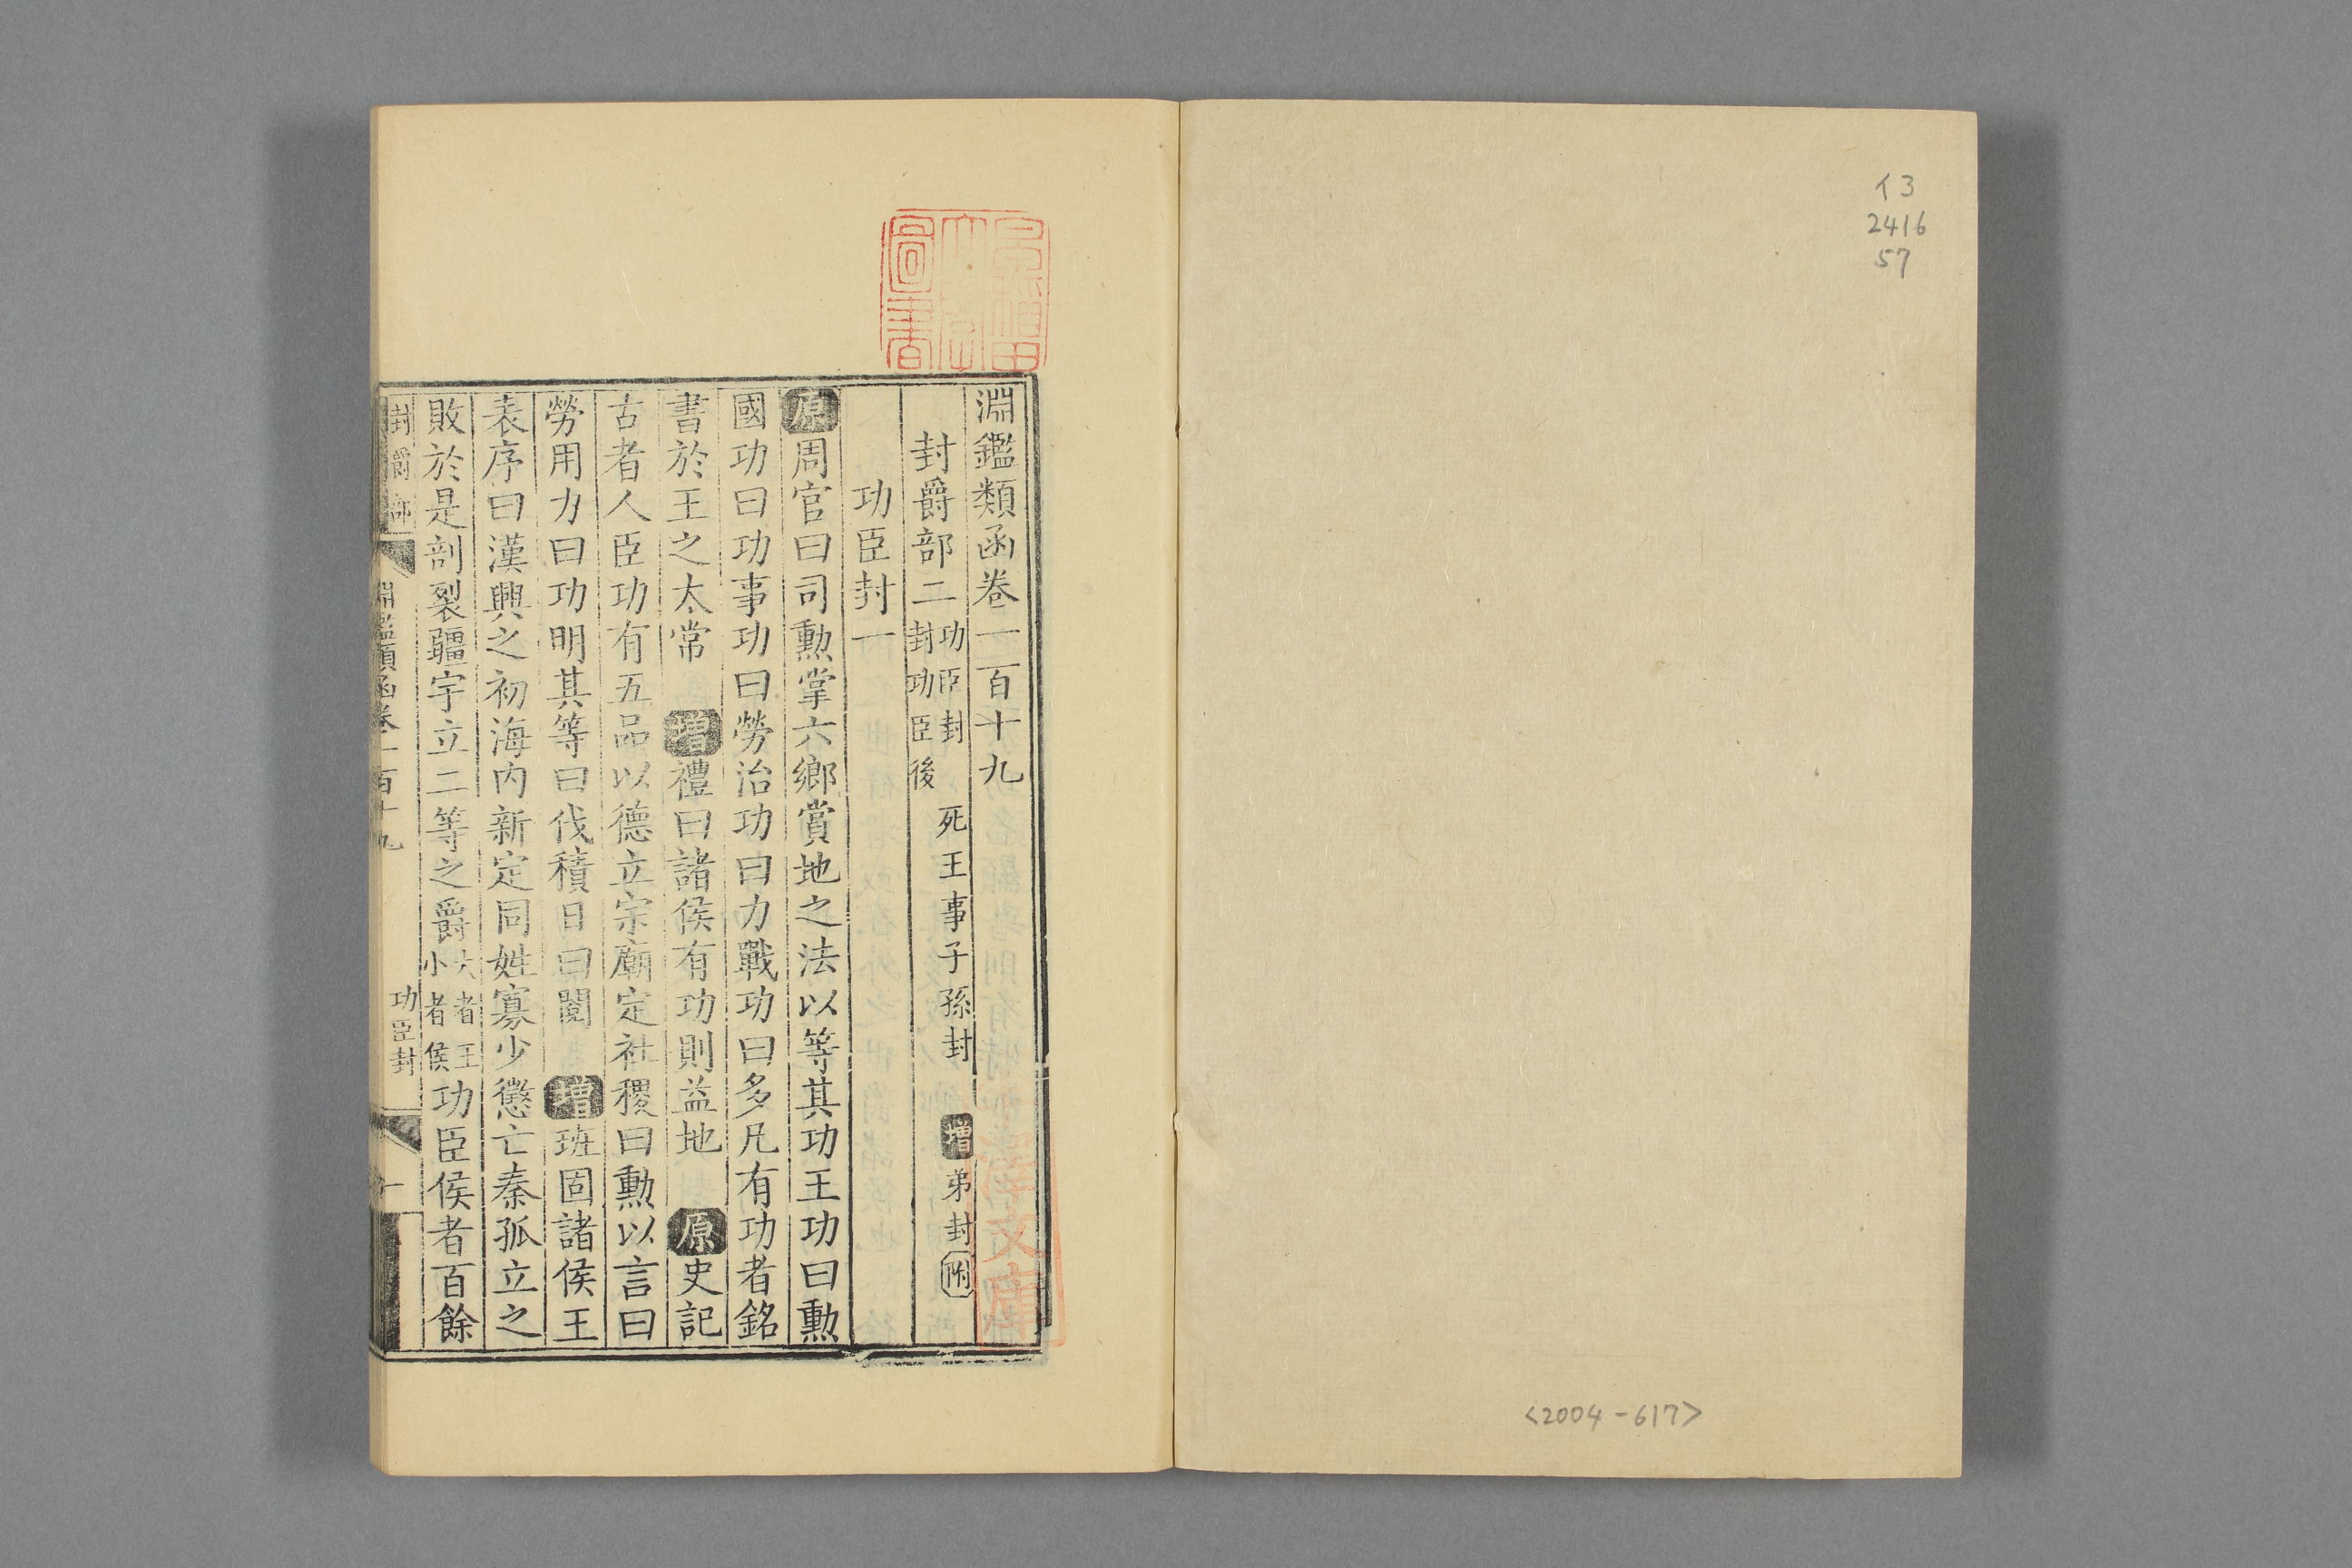 イ3
2416
57
<2004-617>
圖書
淵鑑類函卷一百十九
封爵部二 功臣封 死王事子孫封 增 弟封 附
封功臣後
功臣封一
原周官曰司勳掌六鄉賞地之法以等其功王功曰勳
國功曰功事功曰勞治功曰力戰功曰多凡有功者銘
書於王之太常 增禮曰諸侯有功則益地 原史記
古者人臣功有五品以德立宗廟定社稷曰勳以言曰
勞用力曰功明其等曰伐積日曰閱 增班固諸侯王
表序曰漢興之初海內新定同姓寡少懲亡秦孤立之
敗於是剖裂疆宇立二等之爵大者王小者侯功臣侯者百餘
封爵部 淵鑑類函卷一百十九 功臣封 一
文庫